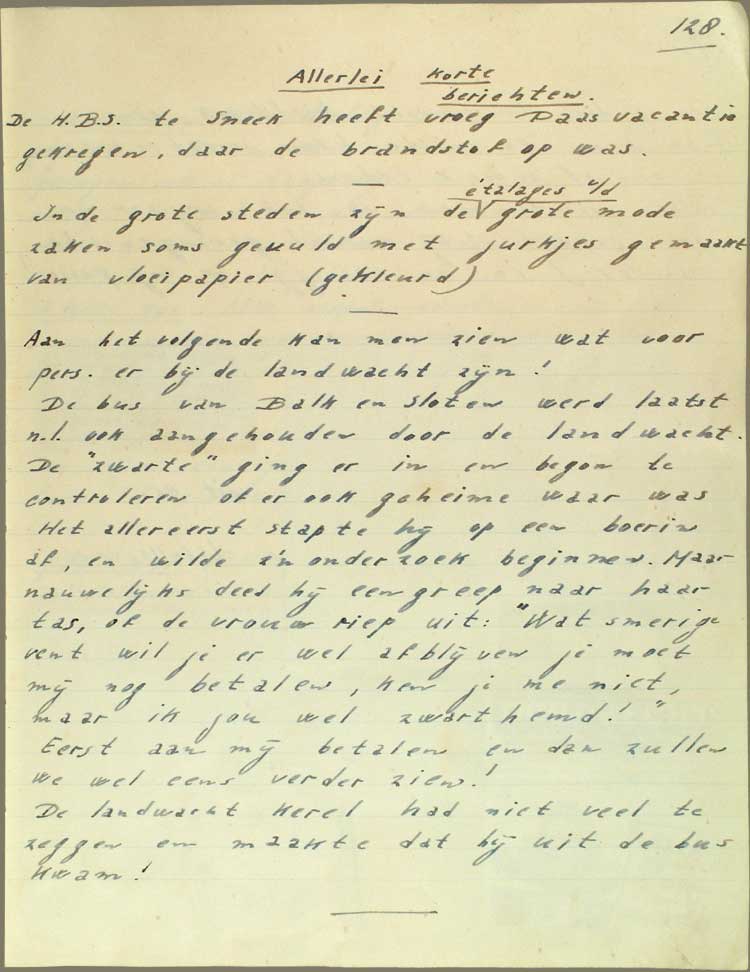 128.
Allerlei korte
berichten.
De H.B.S. te Sneek heeft vroeg Paasvacantie
gekregen, daar de brandstof op was.
étalages v/d
In de grote steden zijn de grote mode
zaken soms gevuld met jurkjes gemaakt
van vloeipapier (gekleurd)
Aan het volgende kan men zien wat voor
pers. er bij de landwacht zijn!
De bus van Balk en Sloten werd laatst
n.l. ook aangehouden door de landwacht.
De "zwarte" ging er in en begon te
controleren of er ook geheime waar was
Het allereerst stapte hij op een boerin
af, en wilde z'n onderzoek beginnen. Maar
nauwelijks deed hij een greep naar haar
tas, of de vrouw riep uit: "Wat smerige
vent wil je er wel afblijven je moet
mij nog betalen, ken je me niet,
maar ik jou wel zwarthemd!"
Eerst aan mij betalen en dan zullen
we wel eens verder zien!
De landwacht kerel had niet veel te
zeggen en maakte dat hij uit de bus
kwam!